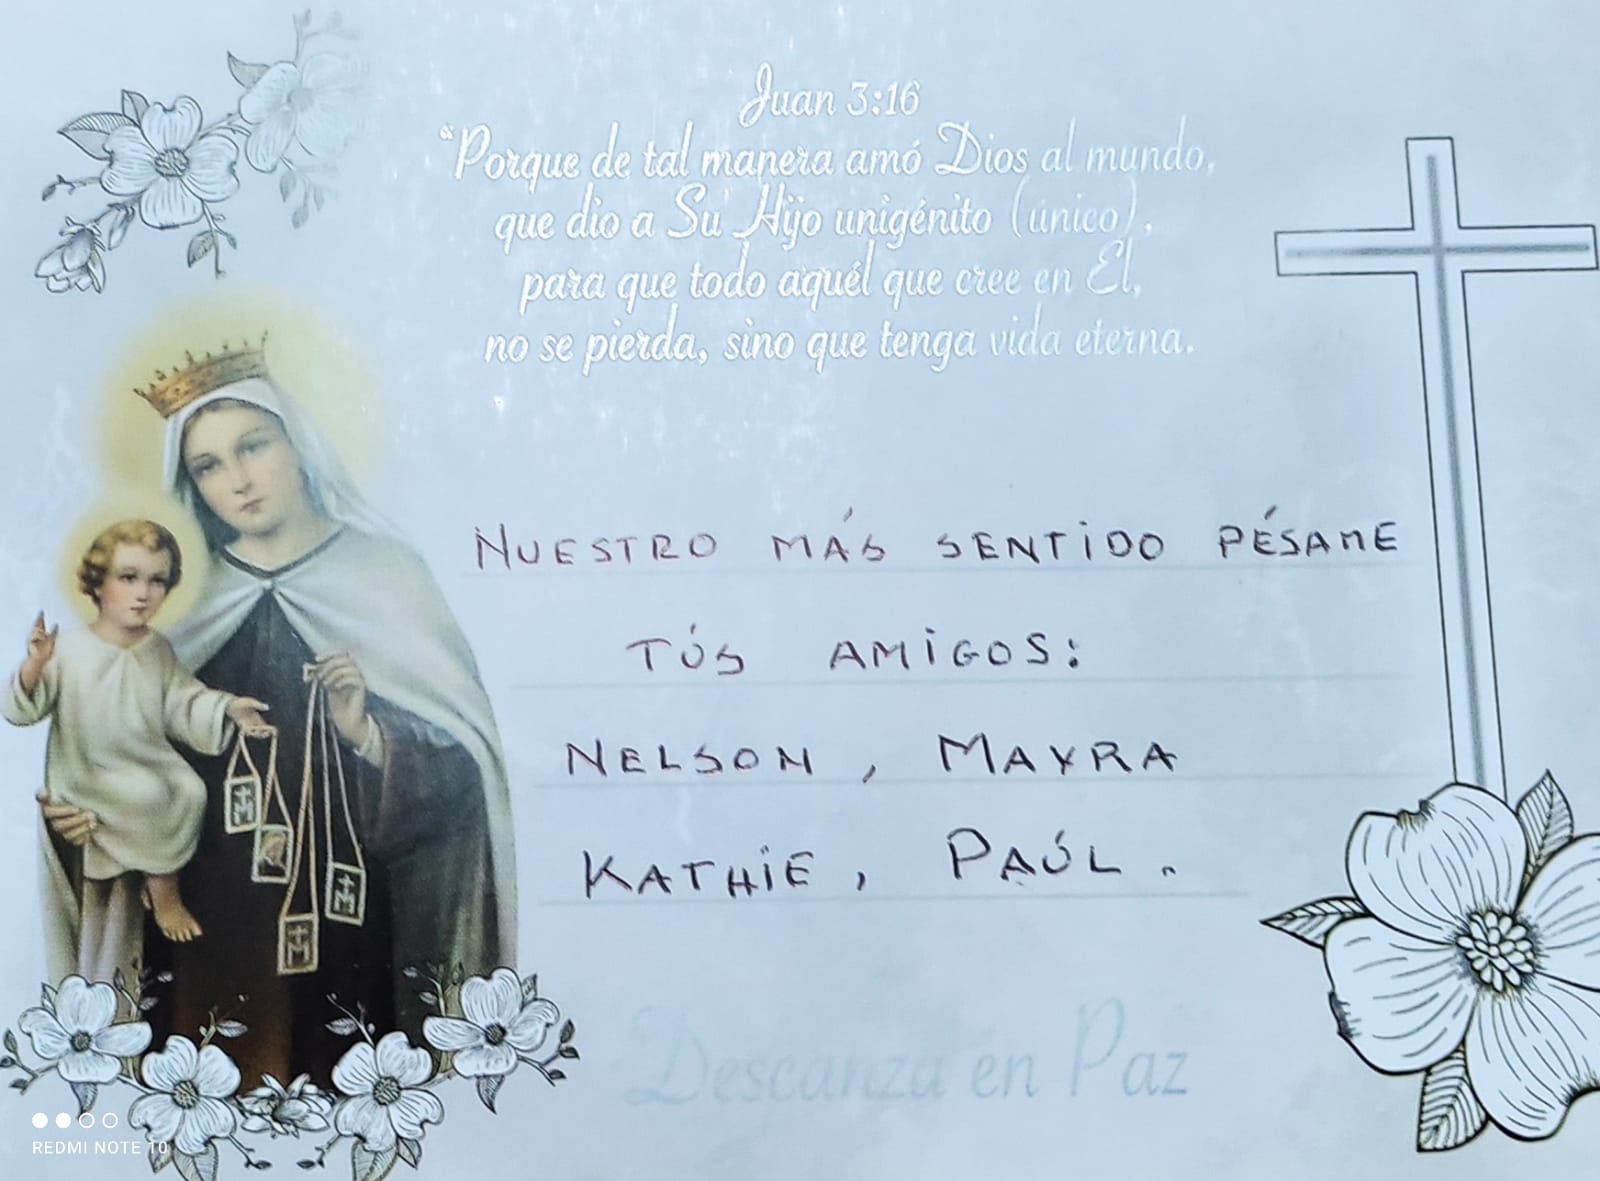 Juan 3:16
"Porque de tal manera amó Dios al mundo,
que dio a Su Hijo unigénito (único),
para que todo aquél que cree en Él,
no se pierda, sino que tenga vida eterna.
NUESTRO MÁS SENTIDO PÉSAME
TÚS AMIGOS:
NELSON, MAYRA
KATHIE, PAÚL.
Descanza en Paz
REDMI NOTE 10